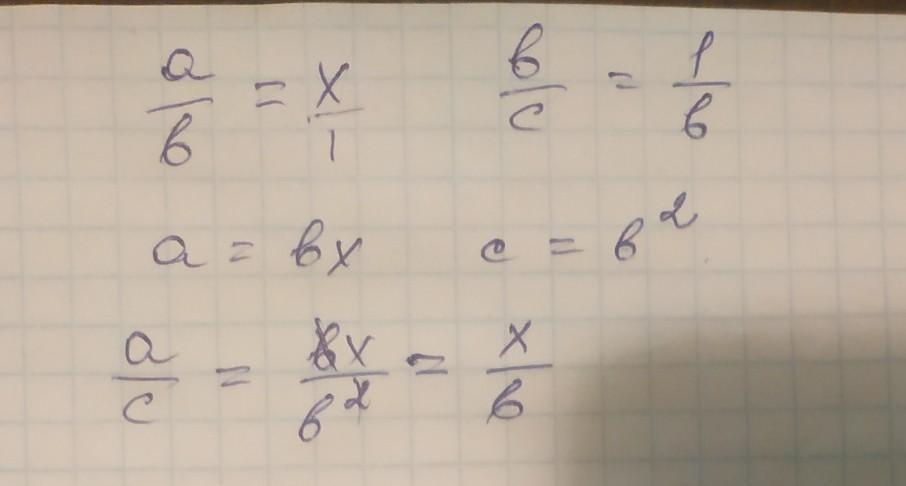 a/b = x/1 b/c = 1/b
a = bx c = b²
a/c = bx/b² = x/b